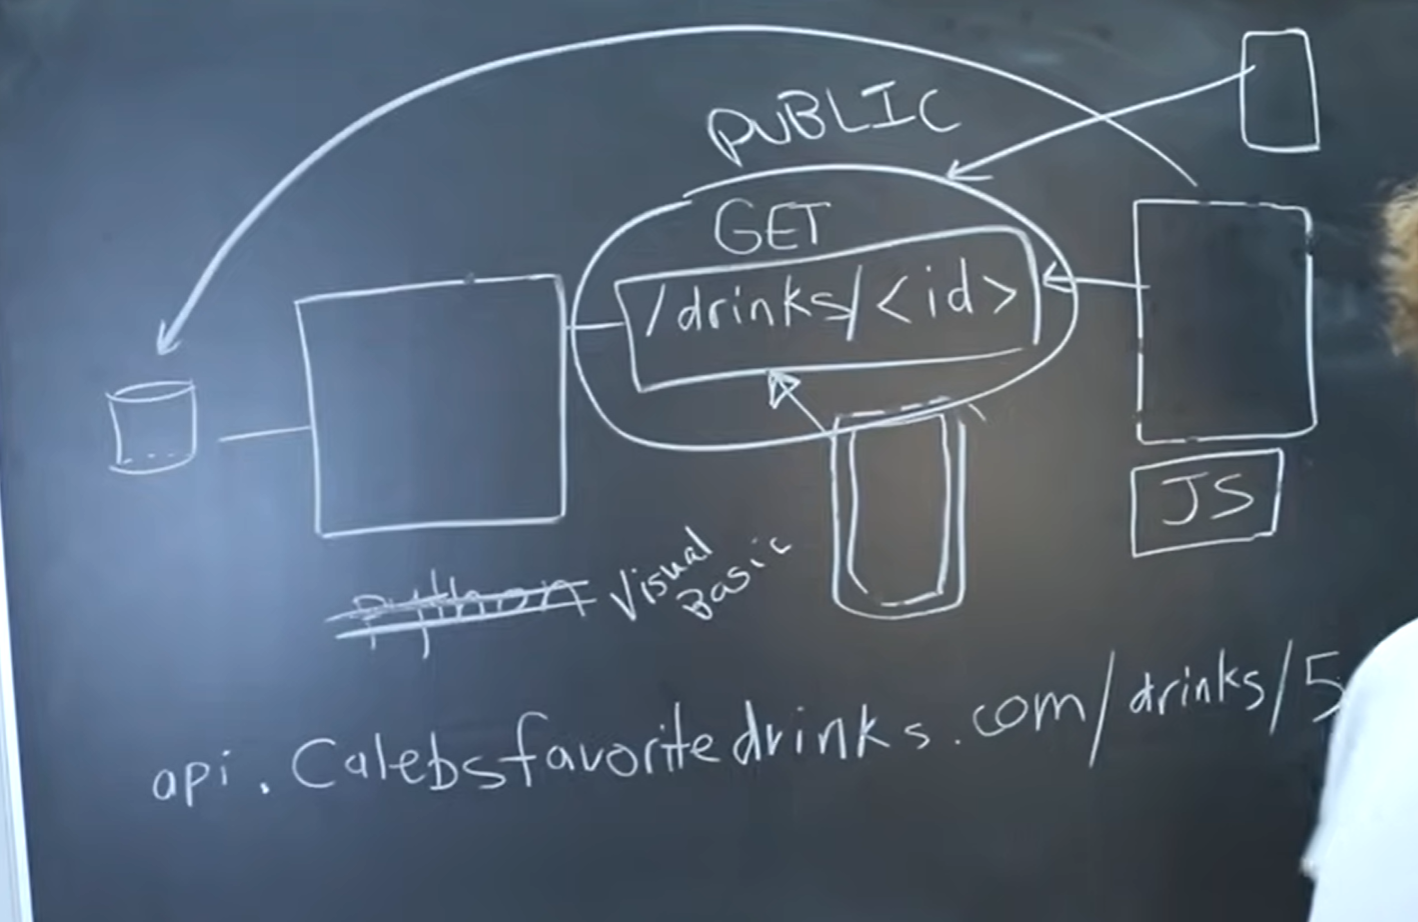 PUBLIC
GET
/drinks/<id>
JS
python Visual
Basic
api.Calebsfavoritedrinks.com/drinks/5